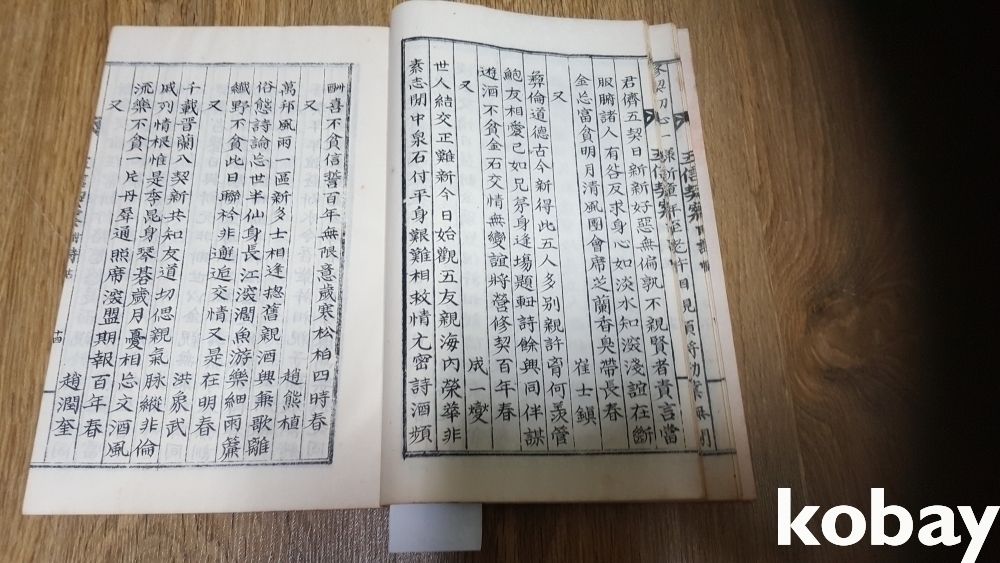 君儕五契日新新好惡無偏孰不親賢者責言當
服膺諸人有咎反求身心如淡水知深淺誼在斷
金忘富貧明月清風團會席芝蘭香臭帶長春
又 崔士鎭
彛倫道德古今新得此五人多別親許脣何羨管
鮑友相愛已如兄茅身逢場題軸詩餘興同伴謀
遊酒不貪金石交情無變誼將營修契百年春
又 成一燮
世人結交正難新今日始觀五友親海內榮華非
素志閒中泉石付平身艱難相救情尤密詩酒頻
酬喜不貧信誓百年無限意歲寒松柏四時春
又 趙熊植
萬邦風雨一區新多士相逢摠舊親酒興兼歌雖
俗態詩論忘世半仙身長江深濶魚游樂細雨簾
纖野不貪此日聯衿非邂逅交情又是在明春
又 洪象武
千載晋蘭八契新共知友道切偲親氣脉縱非倫
戚列情根惟是季昆身琴碁歲月憂相忘文酒風
流樂不貪一片丹羣通照席深盟期報百年春
又 趙潤奎
五信契案
kobay